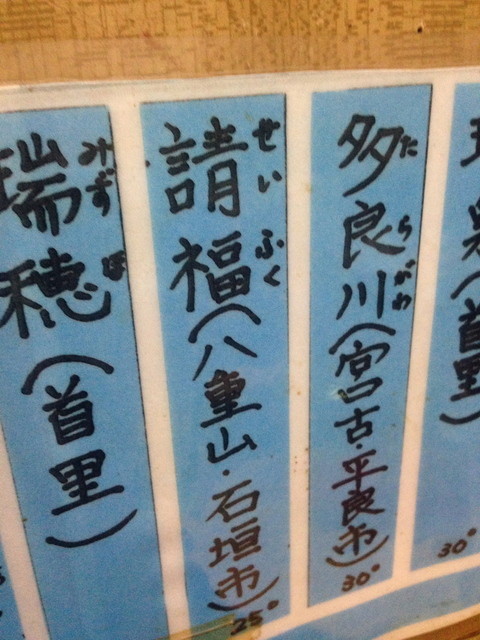 泉(首里)
30°
多良川(宮古・平良市)
たらがわ
30°
請福(八重山・石垣市)
せいふく
25°
瑞穂(首里)
みずほ